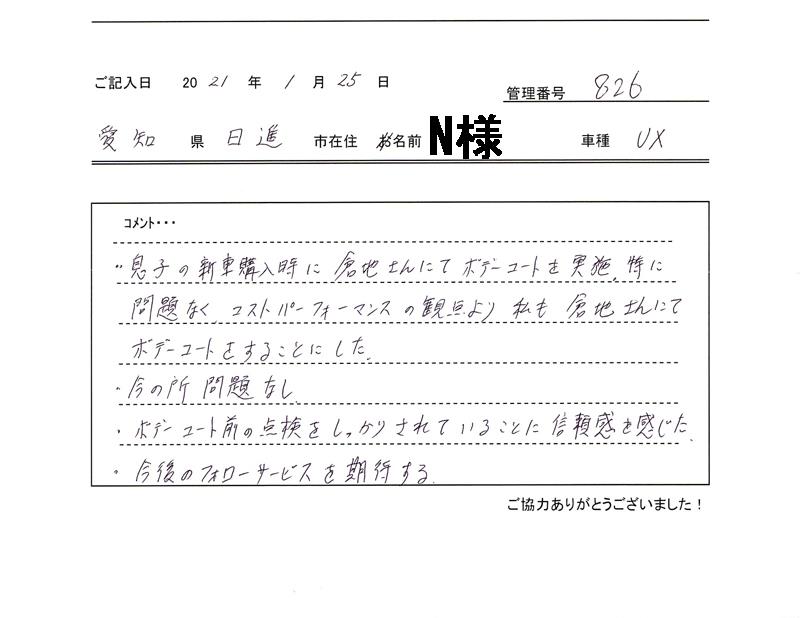 ご記入日 2021年 1月25日
管理番号 826
愛知 県 日進 市在住 お名前 N様 車種 UX
コメント・・・
・息子の新車購入時に倉地さんにてボデーコートを実施。特に
問題なく、コストパーフォーマンスの観点より私も倉地さんにて
ボデーコートをすることにした。
・今の所問題なし。
・ボデーコート前の点検をしっかりされていることに信頼感を感じた。
・今後のフォローサービスを期待する。
ご協力ありがとうございました!